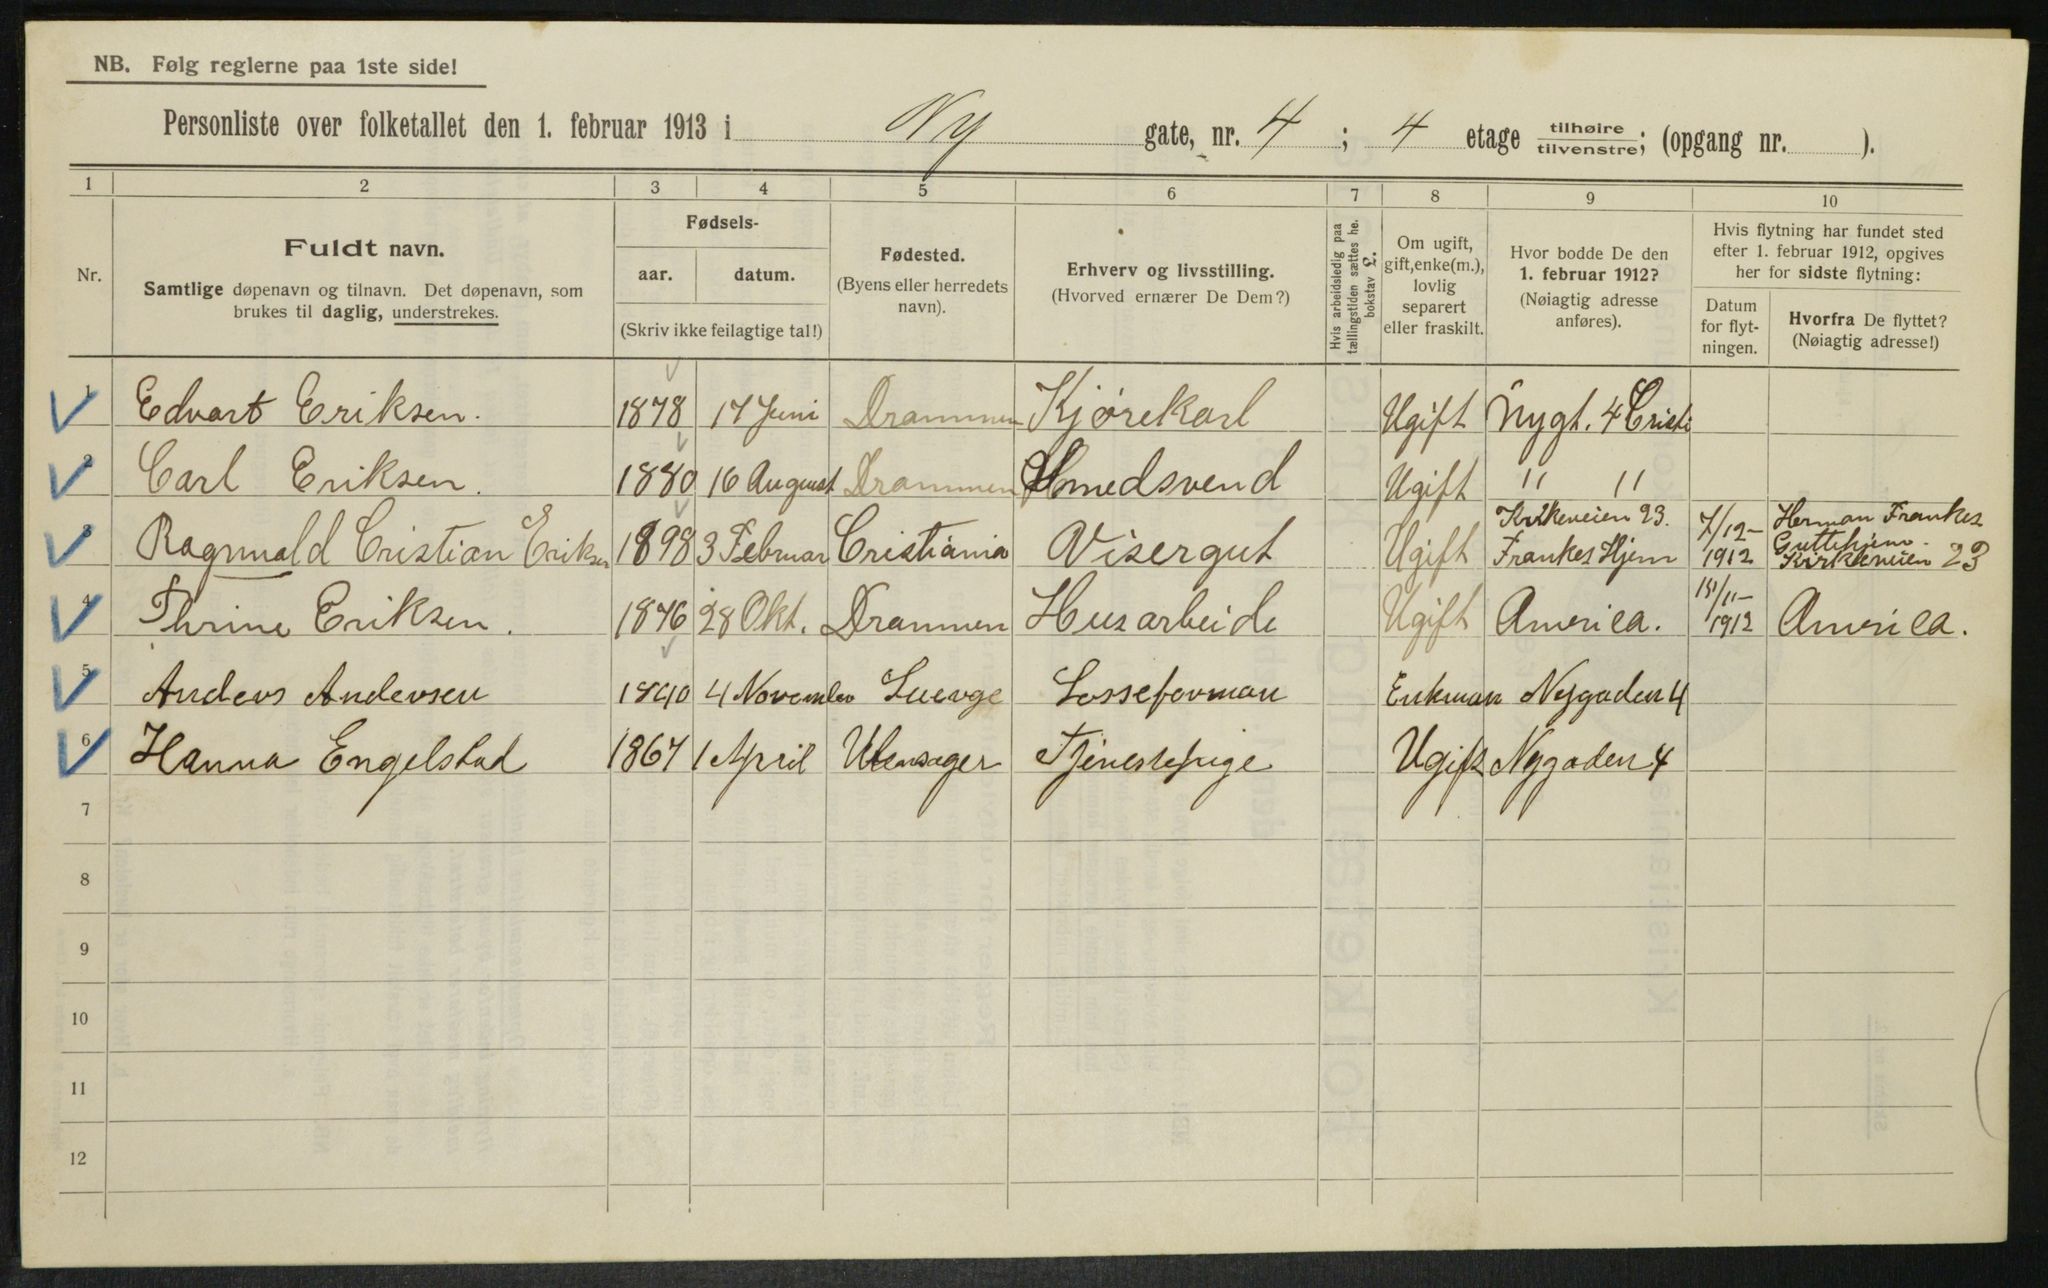 NB. Følg reglerne paa 1ste side!
Personliste over folketallet den 1. februar 1913 i Ny gate, nr. 4 ; 4 etage tilhøire tilvenstre; (opgang nr. ).
1 2 3 4 5 6 7 8 9 10
Nr.
Fuldt navn.
Samtlige døpenavn og tilnavn. Det døpenavn, som
brukes til daglig, understrekes.
Fødsels-
aar. datum.
(Skriv ikke feilagtige tal!)
Fødested.
(Byens eller herredets
navn).
Erhverv og livsstilling.
(Hvorved ernærer De Dem?)
Hvis arbeidsledig paa
tællingstiden sættes he.
bokstav L.
Om ugift,
gift, enke(m.),
lovlig
separert
eller fraskilt.
Hvor bodde De den
1. februar 1912?
(Nøiagtig adresse
anføres).
Hvis flytning har fundet sted
efter 1. februar 1912, opgives
her for sidste flytning:
Datum
for flyt-
ningen.
Hvorfra De flyttet?
(Nøiagtig adresse!)
1 Edvart Eriksen. 1878 17 Juni Drammen Kjørekarl Ugift Nygt. 4 Cristi
2 Carl Eriksen. 1880 16 August Drammen Smedsvend Ugift " "
3 Ragnvald Cristian Eriksen 1898 3 Februar Cristiania Visergut Ugift Kirkeveien 23. Frankes Hjem 7/12-1912 Herman Frankes Guttehjem. Kirkeveien 23
4 Thrine Eriksen. 1876 28 Okt. Drammen Husarbeide Ugift America. 1912 America.
5 Anders Andersen 1840 4 November Sverge Losseforman Enkman Nygaden 4
6 Hanna Engelstad 1867 1 April Ullensager Tjenestepige Ugift Nygaden 4
7
8
9
10
11
12